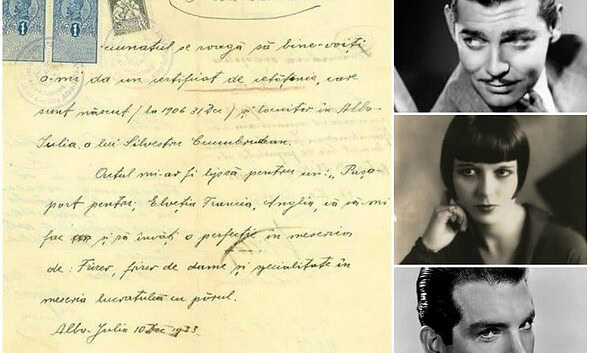 1 1
se roagă să bine-voiți
a-mi da un certificat de cetățenie, care
sunt născut (la 1906 31 Dec) și locuitor în Alba
Iulia, a lui Silvestru
Actul mi-ar fi lipsă pentru un: „Pașa-
port pentru: Elveția Francia, Anglia, să-mi
fac și să învăț a perfecție în meseria
de: Frizer, frizer de dame și specialitate în
meseria lucratului cu părul.
Alba-Julia 10 Dec 1933